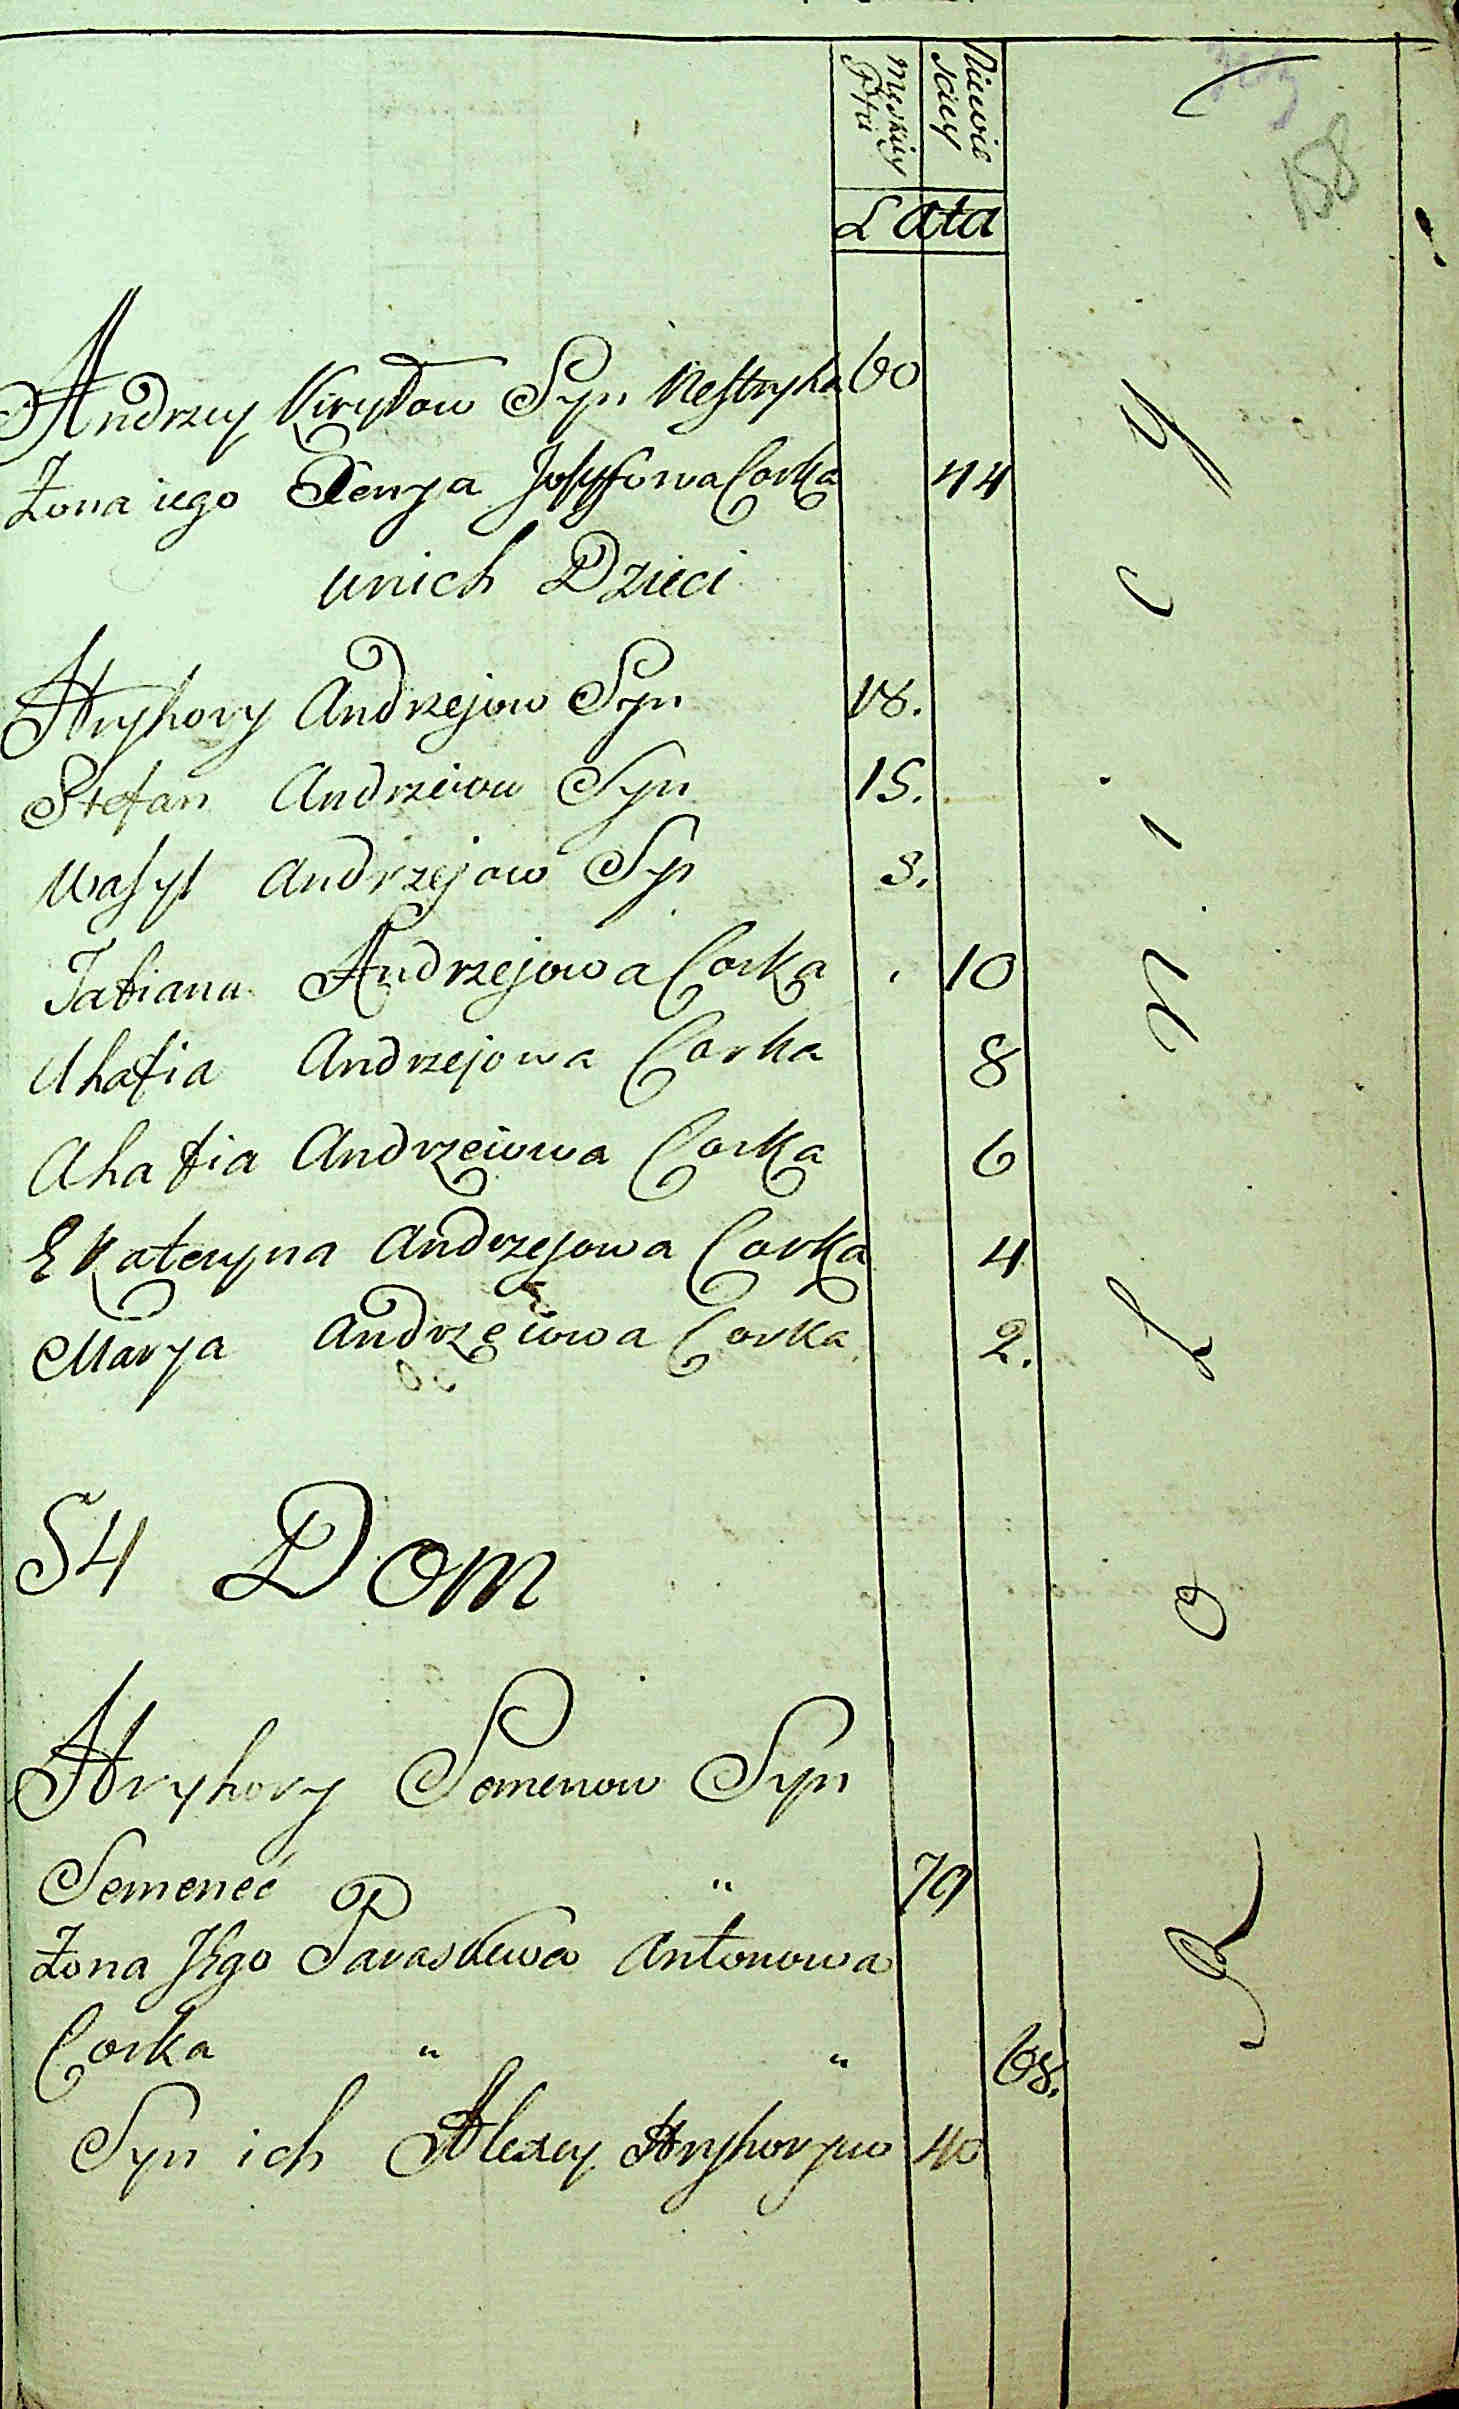 Męskiey Płci
Niewie
sciey
Lata
158
Andrzey Kiryłow Syn Nestryka 60
Żona iego Xenya Josyfowa Corka 44
unich Dzieci
Hryhory Andrzejow Syn 18.
Stefan Andrzeiow Syn 15.
Wasyl Andrzejow Syn 3.
Tatiana Andrzejowa Corka 10
Ahafia Andrzejowa Corka 8
Ahafia Andrzeiowa Corka 6
Ekateryna Andrzejowa Corka 4
Marya Andrzeiowa Corka 2.
54 Dom
Hryhory Semenow Syn
Semeneć " 70
Żona Jego Paraskewa Antonowa
Corka " " 68.
Syn ich Alexey Hryhoryow 40
Rolnicy